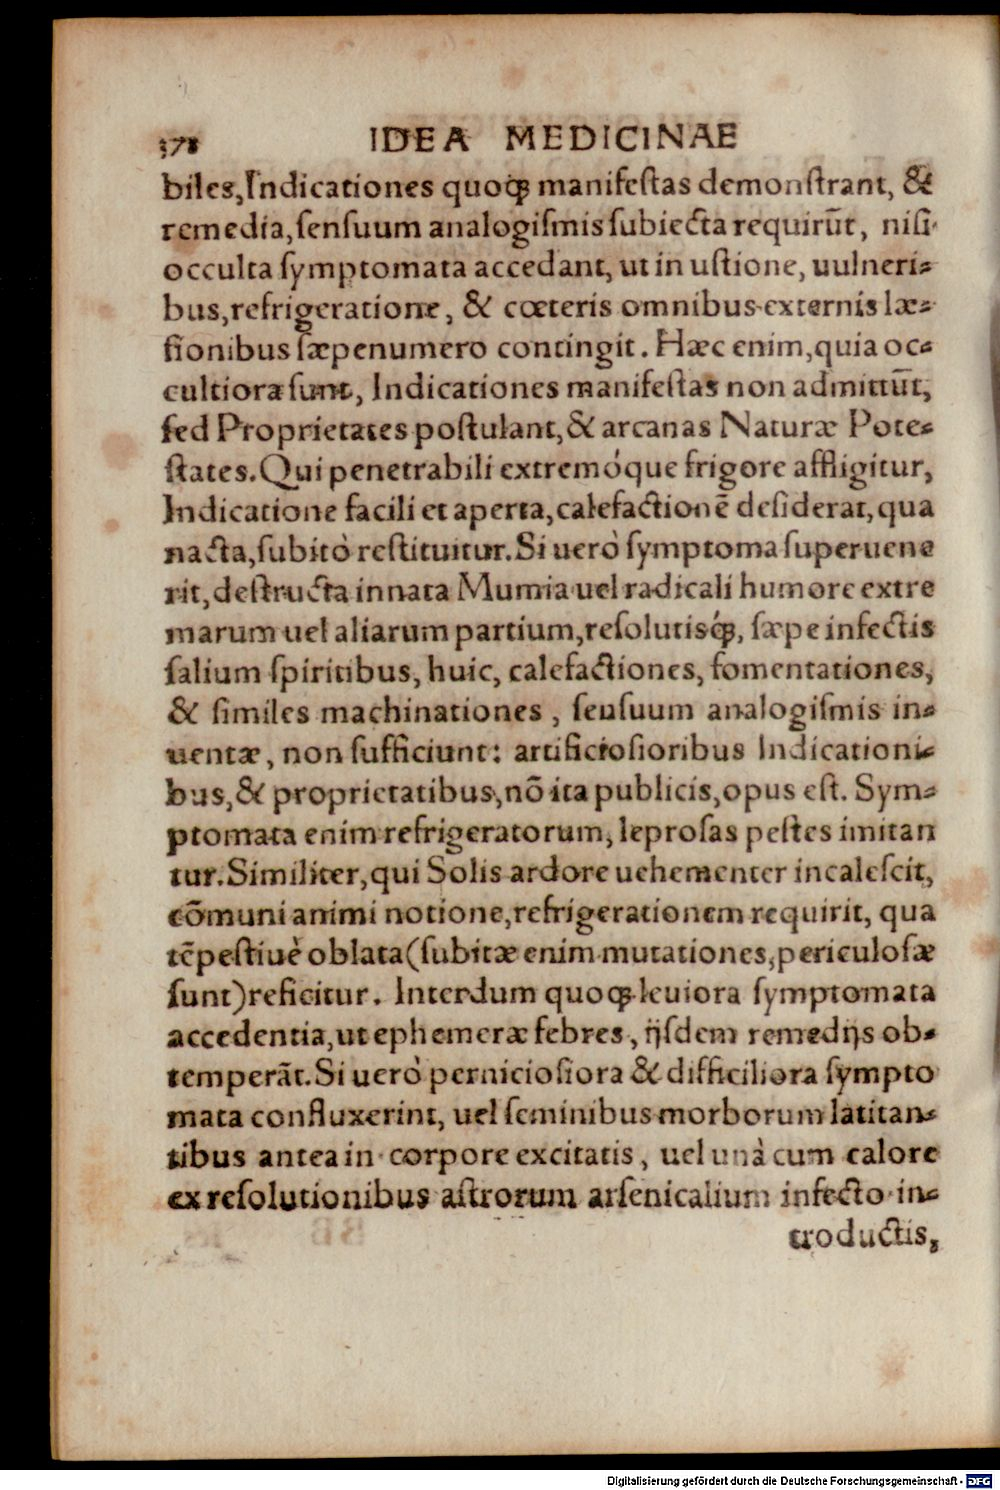 378 IDEA MEDICINAE
biles, Indicationes quoqꝫ manifestas demonstrant, &
remedia, sensuum analogismis subiecta requirūt, nisi
occulta symptomata accedant, ut in ustione, uulneri-
bus, refrigeratione, & cœteris omnibus externis læ-
sionibus sæpenumero contingit. Hæc enim, quia oc-
cultiora sunt, Indicationes manifestas non admittūt,
sed Proprietates postulant, & arcanas Naturæ Pote-
states. Qui penetrabili extremóque frigore affligitur,
Indicatione facili et aperta, calefactionē desiderat, qua
nacta, subitò restituitur. Si uerò symptoma superuene
rit, destructa innata Mumia uel radicali humore extre
marum uel aliarum partium, resolutisq́ꝫ, sæpe infectis
salium spiritibus, huic, calefactiones, fomentationes,
& similes machinationes, sensuum analogismis in-
uentæ, non sufficiunt: artificiosioribus Indicationi-
bus, & proprietatibus, nō ita publicis, opus est. Sym-
ptomata enim refrigeratorum, leprosas pestes imitan
tur. Similiter, qui Solis ardore uehementer incalescit,
cōmuni animi notione, refrigerationem requirit, qua
tēpestiuè oblata (subitæ enim mutationes, periculosæ
sunt) reficitur. Interdum quoqꝫ leuiora symptomata
accedentia, ut ephemeræ febres, ijsdem remedijs ob-
temperāt. Si uerò perniciosiora & difficiliora sympto
mata confluxerint, uel seminibus morborum latitan-
tibus antea in corpore excitatis, uel unà cum calore
ex resolutionibus astrorum arsenicalium infecto in-
troductis,
Digitalisierung gefördert durch die Deutsche Forschungsgemeinschaft - DFG